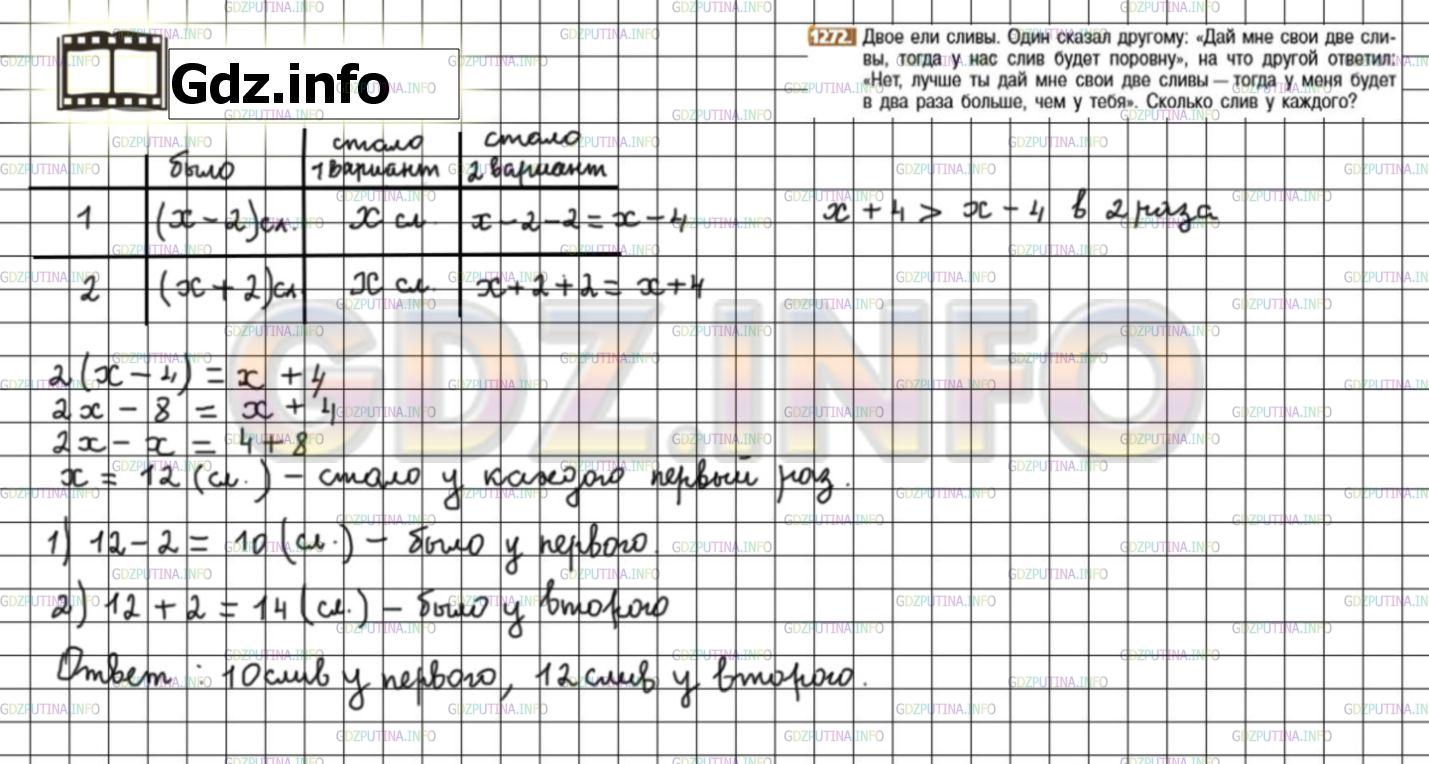 Gdz.info
1272. Двое ели сливы. Один сказал другому: «Дай мне свои две сли-
вы, тогда у нас слив будет поровну», на что другой ответил:
«Нет, лучше ты дай мне свои две сливы — тогда у меня будет
в два раза больше, чем у тебя». Сколько слив у каждого?
было стало 1 вариант стало 2 вариант
1 (x - 2) сл. x сл x - 2 - 2 = x - 4
2 (x + 2) сл x сл. x + 2 + 2 = x + 4
x + 4 > x - 4 в 2 раза
2(x - 4) = x + 4
2x - 8 = x + 4
2x - x = 4 + 8
x = 12 (сл.) - стало у каждого первый раз.
1) 12 - 2 = 10 (сл.) - было у первого.
2) 12 + 2 = 14 (сл.) - было у второго
Ответ: 10 слив у первого, 12 слив у второго.
GDZ.INFO
GDZPUTINA.INFO